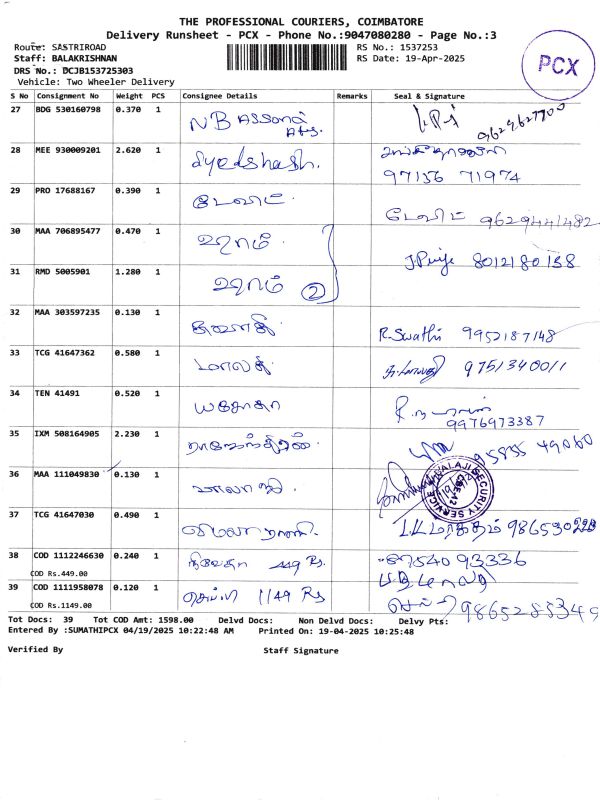 THE PROFESSIONAL COURIERS, COIMBATORE
Delivery Runsheet - PCX - Phone No.:9047080280 - Page No.:3
Route: SASTRIROAD
RS No.: 1537253
Staff: BALAKRISHNAN
RS Date: 19-Apr-2025
DRS No.: DCJB153725303
Vehicle: Two Wheeler Delivery
PCX
S No Consignment No Weight PCS Consignee Details Remarks Seal & Signature
27 BDG 530160798 0.370 1 NB 9629627700
28 MEE 930009201 2.620 1 97156 71974
29 PRO 17688167 0.390 1 டேவிட் டேவிட் 9629441482
30 MAA 706895477 0.470 1 ஊராம் J.Priya 8012180158
31 RMD 5005901 1.280 1 ஊராம் 2
32 MAA 303597235 0.130 1 R.Swathi 9952187148
33 TCG 41647362 0.580 1 மாலதி 9751340011
34 TEN 41491 0.520 1 யசோதா 9976973387
35 IXM 508164905 2.230 1 ராஜேந்திரன் 95855 49060
36 MAA 111049830 0.130 1 பாலாஜி BALAJI SECURITY SERVICE
37 TCG 41647030 0.490 1 விமலா ராணி
38 COD 1112246630 0.240 1 நிவேதா 449 Rs. 87540 93336
COD Rs.449.00
39 COD 1111958078 0.120 1 செல்வி 1149 Rs செல்வி 9865285349
COD Rs.1149.00
Tot Docs: 39 Tot COD Amt: 1598.00 Delvd Docs: Non Delvd Docs: Delvy Pts:
Entered By :SUMATHIPCX 04/19/2025 10:22:48 AM Printed On: 19-04-2025 10:25:48
Verified By Staff Signature